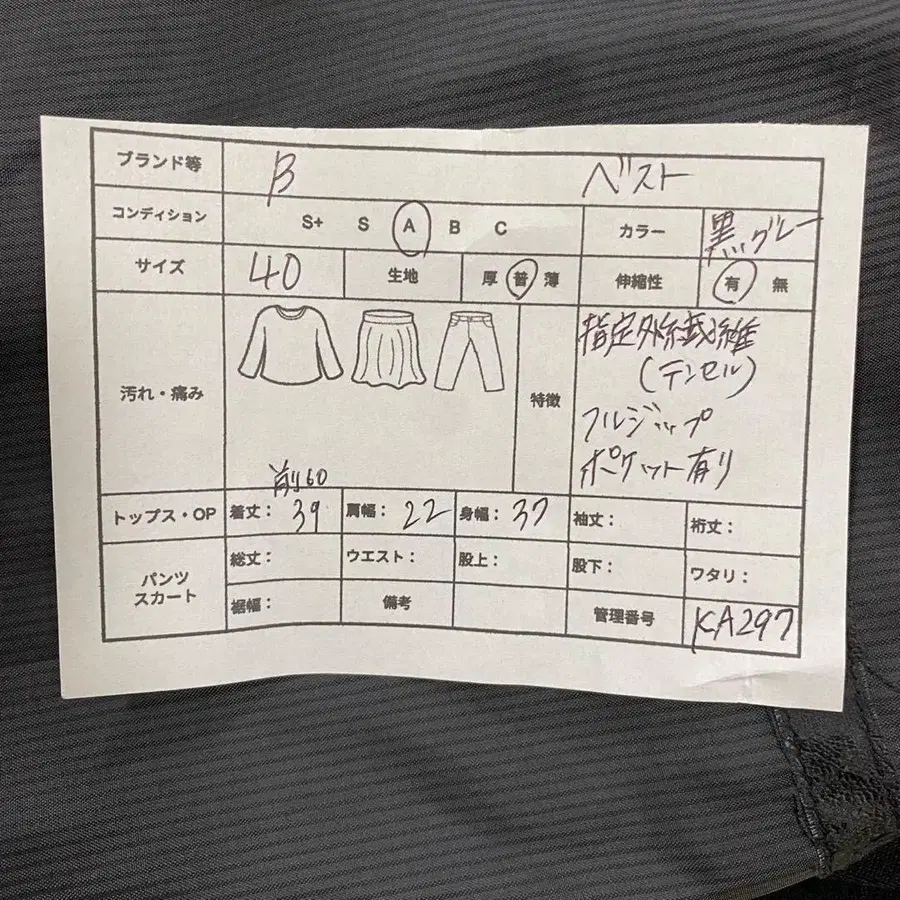 ブランド等 B ベスト
コンディション S+ S A B C カラー 黒、グレー
サイズ 40 生地 厚 普 薄 伸縮性 有 無
汚れ・痛み 特徴 指定外繊維
(テンセル)
フルジップ
ポケット有り
前60
トップス・OP 着丈： 39 肩幅： 22 身幅： 37 袖丈： 裄丈：
パンツ スカート 総丈： ウエスト： 股上： 股下： ワタリ：
裾幅： 備考 管理番号 KA297